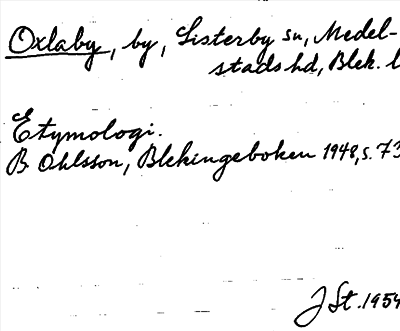 Oxlaby, by, Listerby sn, Medel-
stads hd, Blek. l
Etymologi.
B Ohlsson, Blekingeboken 1948, s. 73
J St. 1954